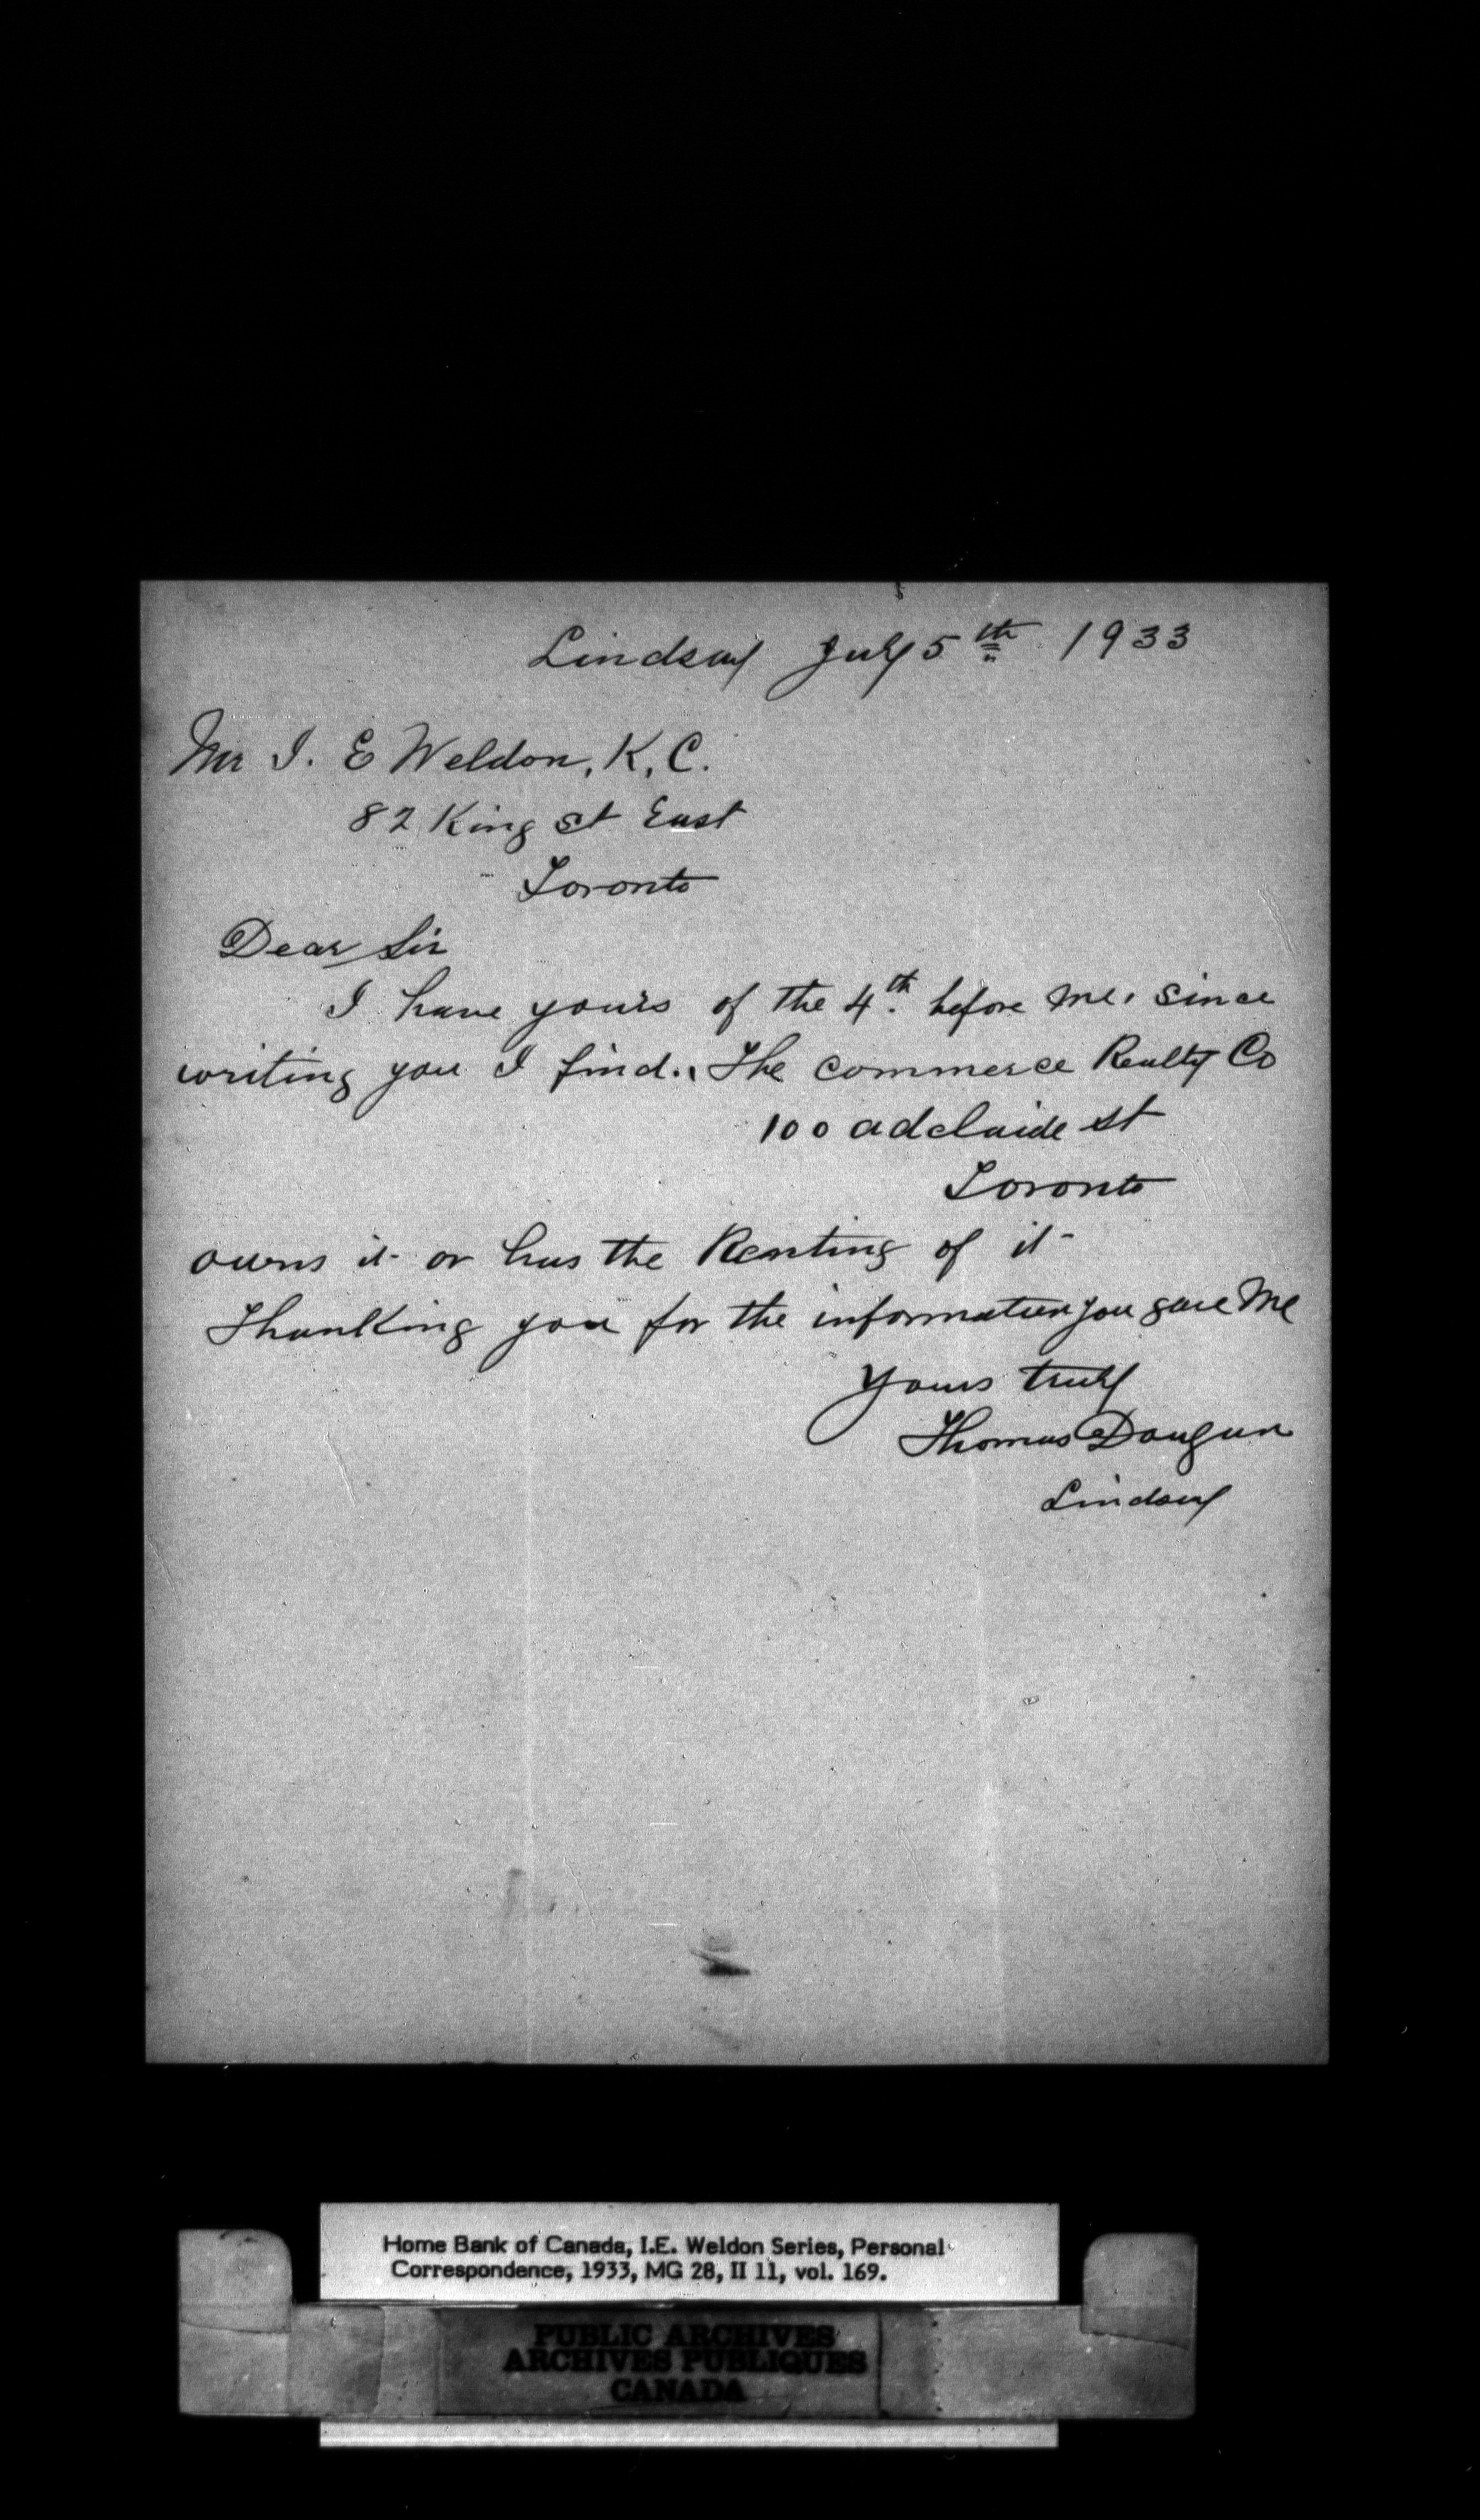 Lindsay July 5th 1933
Mr I. E Weldon, K, C.
82 King st East
Toronto
Dear Sir
I have yours of the 4th. before me. since
writing you I find.. The commerce Realty Co
100 adelaide st
Toronto
owns it or has the Renting of it
Thanking you for the information you gave Me
Yours truly
Thomas Dougan
Lindsay
Home Bank of Canada, I.E. Weldon Series, Personal
Correspondence, 1933, MG 28, II 11, vol. 169.
PUBLIC ARCHIVES
ARCHIVES PUBLIQUES
CANADA